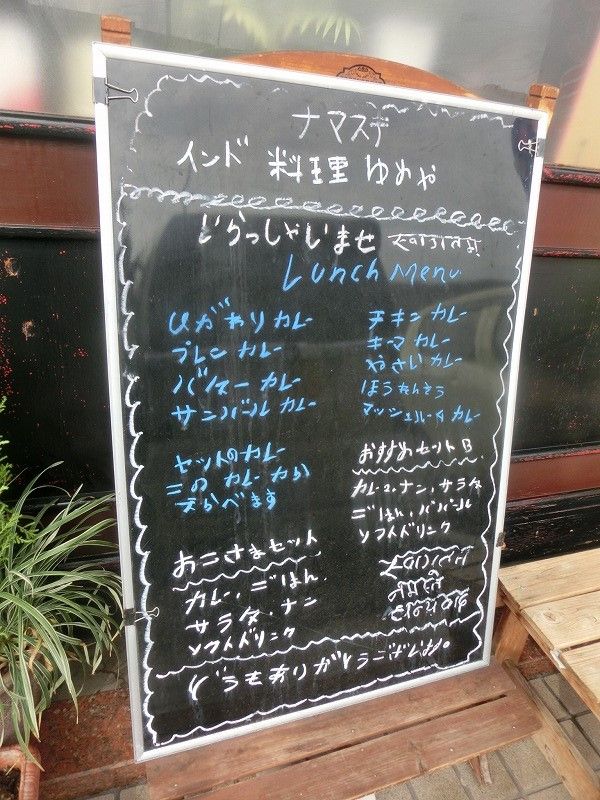 ナマステ
インド 料理 ゆめや
いらっしゃいませ
Lunch Menu
ひがわり カレー
プレン カレー
バター カレー
サンバール カレー
チキン カレー
キーマ カレー
やさい カレー
ほうれんそう
マッシュルーム カレー
セットのカレー
この カレー から
えらべます
おすすめセット B
カレー2、ナン、サラダ
ごはん、パパール
ソフトドリンク
おこさまセット
カレー、ごはん、
サラダ、ナン
ソフトドリンク
どうもありがとうございます。